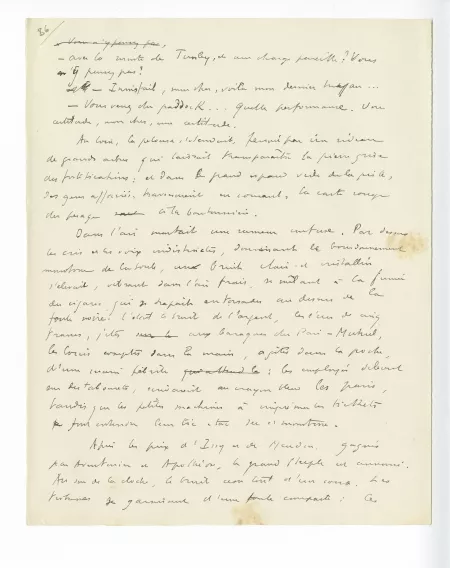 86
– Vous n'y pensez pas,
– avec la monte de Tunley, et une charge pareille? Vous
n'y pensez pas!
– Innisfail, mon cher, voilà mon dernier
– Vous venez du paddock... Quelle performance. Une
certitude, mon cher, une certitude.
Au loin, la pelouse s'étendait, fermée par un rideau
de grands arbres qui laissait transparaître la pierre grise
des fortifications; et dans le grand espace vide de la piste,
des gens affairés traversaient en courant, la carte rouge
du pesage à la boutonnière.
Dans l'air montait une rumeur confuse. Par dessus
les cris et les voix indistinctes, dominant le bourdonnement
monotone de la foule, un bruit clair et cristallin
s'élevait, vibrant dans l'air frais, se mêlant à la fumée
du cigare, qui se répandait au dessus de la
foule noire: c'était le bruit de l'argent, les écus de cinq
francs, jetés sur le aux baraques du Pari-Mutuel,
les louis comptés dans la main, agités dans la poche
d'une main fébrile: les employés debout
sur les tabourets, au crayon bleu les paris,
tandis que les petites machines à tickets
font entendre leur tic-tac sec et monotone.
Après les prix d'Issy et de Meudon, gagnés
par et, le grand Steeple est annoncé.
Au son de la cloche, le bruit d'un coup. Les
tribunes se garnissent d'une foule compacte: les